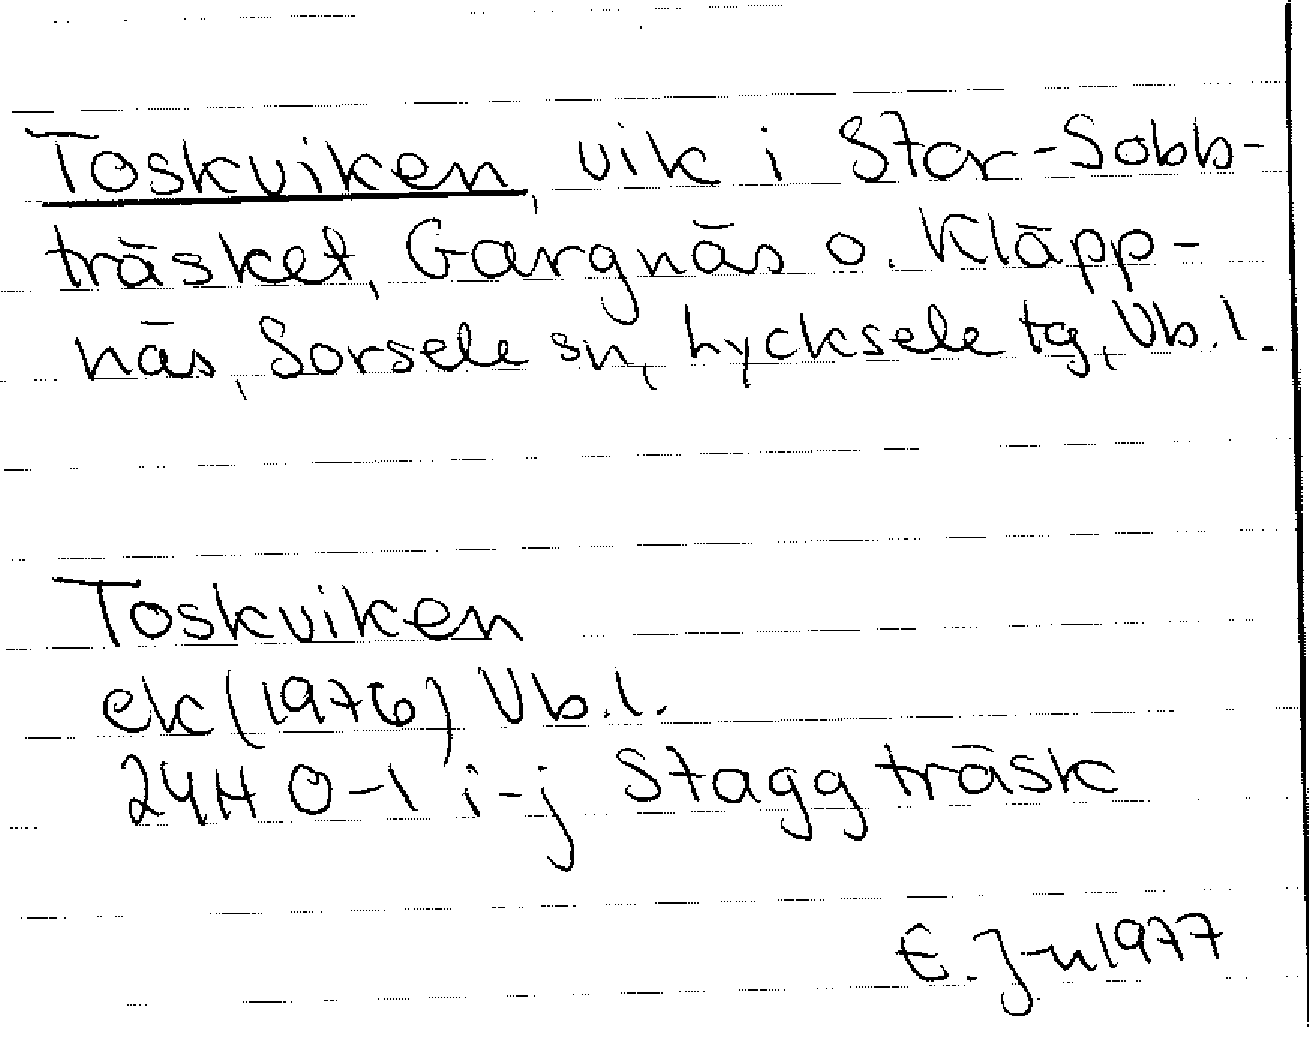 Toskviken, vik i Stor-Sobb-
träsket, Gargnäs o. Kläpp-
näs, Sorsele sn, Lycksele tg, Vb.l.
Toskviken
ek (1976) Vb.l.
24H 0-1 i-j Staggträsk
E. J-n 1977